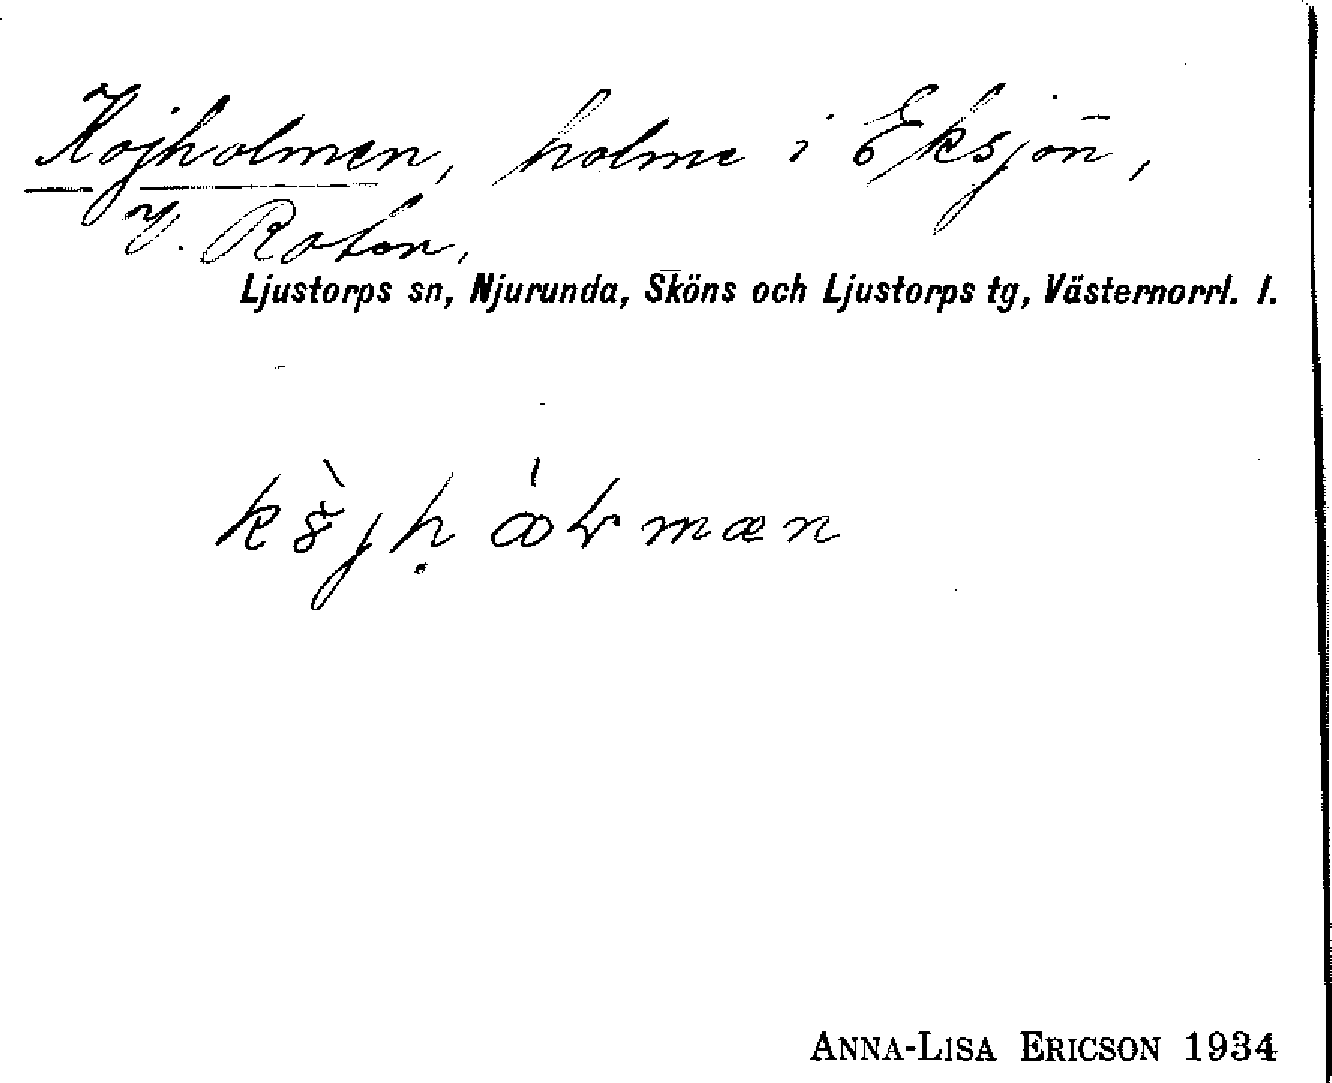 Kojholmen, holme i Eksjön,
V. Roten,
Ljustorps sn, Njurunda, Sköns och Ljustorps tg, Västernorrl. l.
ANNA-LISA ERICSON 1934